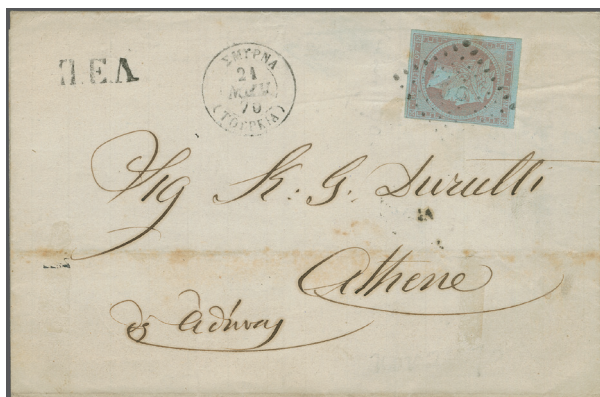 Π.Ε.Λ
ΣΜΥΡΝΑ
21
70
(ΤΟΥΡΚΙΑ)
Sig K. G. Durutti
Athene
Ἀθήνας